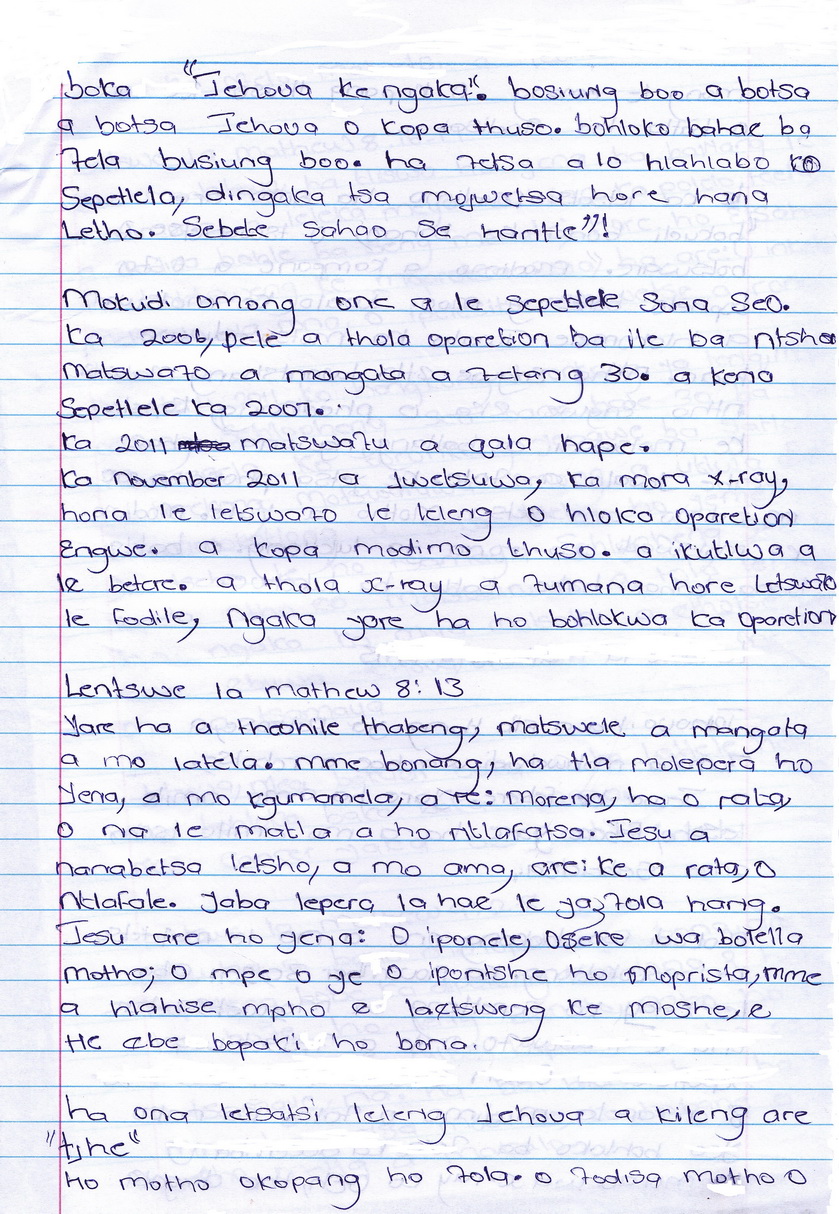 boka "Jehova ke ngaka". bosiung boo a botsa
a botsa Jehova o kopa thuso. bohloko bahae ba
7ela busiung boo. ha 7etsa a lo hlahlabo ko
Sepetlela, dingaka tsa mojwetsa hore hana
Letho. Sebete sahao se hantle"!
Mokudi omong one a le sepetlele Sona Seo.
Ka 2006, pele a thola oparetion ba ile ba ntsha
Matswa7o a mangata a 7etang 30. a kena
Sepetlele ka 2007.
Ka 2011 matswa7u a qala hape.
Ka november 2011 a jwetsuwa, ka mora x-ray,
hona le letswa7o le leleng o hloka oparetion
Engwe. a kopa modimo thuso. a ikutlwa a
le betere. a thola x-ray a 7umana hore Letswa7o
le fodile, Ngaka yare ha ho bohlokwa ka oparetion
Lentswe la mathew 8:13
Yare ha a theohile thabeng, matswele a mangata
a mo latela. mme bonang, ha tla molepera ho
Yena, a mo kgumamela, a re: morena, ha o rata,
O na le matla a ho ntlafatsa. Jesu a
nanabetsa letsho, a mo ama, are: ke a rata, o
ntlafale. Jaba lepera la hae le ya 7ola hang.
Jesu are ho yena: O iponele, Oseke wa bolella
motho; o mpe o ye o ipontshe ho moprista, mme
a hlahise mpho e laetsweng ke moshe, e
He ebe bopaki ho bona.
ha ona letsatsi leleng Jehova a kileng are
"tjhe"
ho motho okopang ho 7ola. o 7odisa motho o